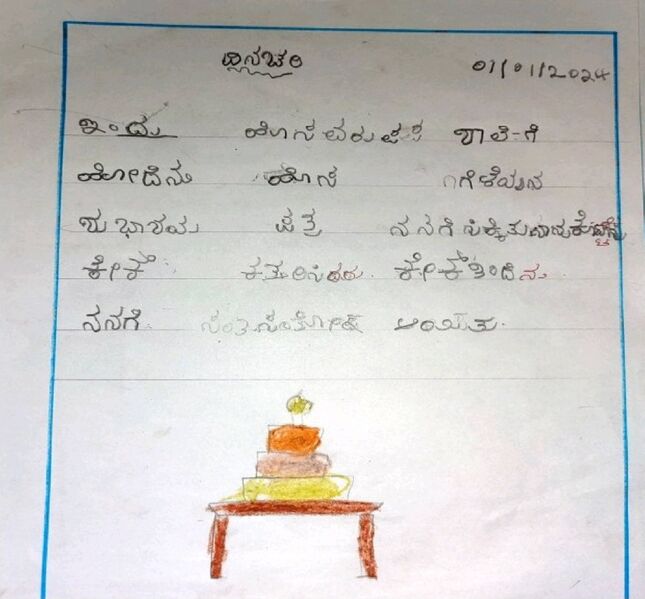 ದಿನಚರಿ 01/01/2024
ಇಂದು ಹೊಸ ವರುಷ ಶಾಲೆಗೆ
ಹೋದೆನು ಹೊಸ ಗೆಳೆಯನ
ಶುಭಾಶಯ ಪತ್ರ ನನಗೆ ಸಿಕ್ಕಿತು
ಕೇಕೆ ಕತ್ತರಿಸಿದರು. ಕೇಕ್ ತಿಂದೆನು
ನನಗೆ ಸಂತೋಷ ಆಯಿತು.